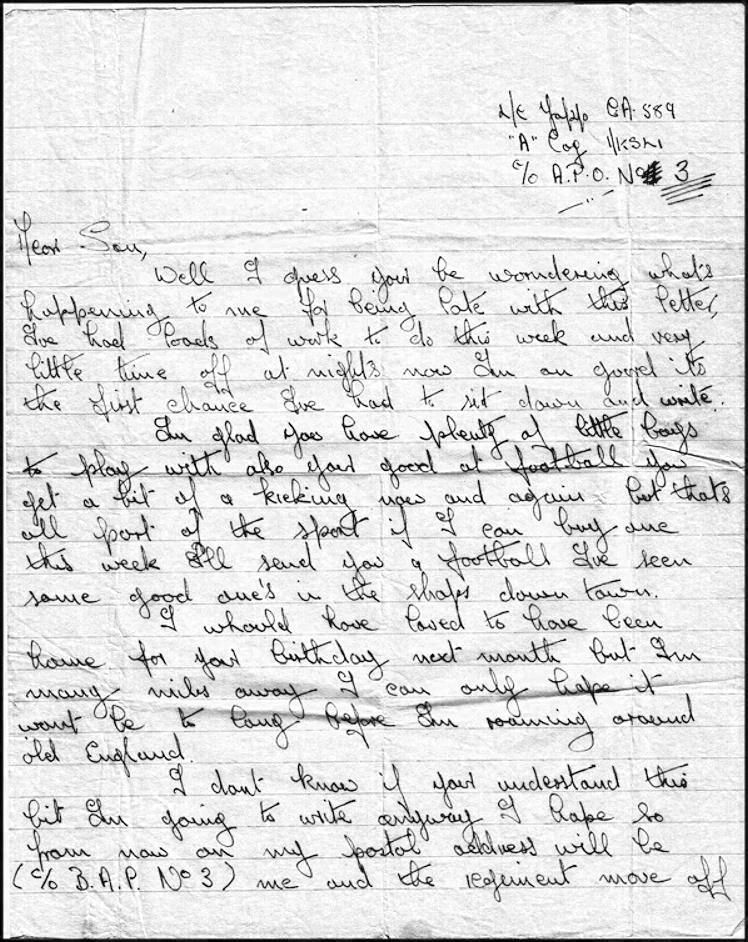 L/C Yapp CA 589
"A" Coy 1/KSLI
C/o A.P.O. No 3
Dear Son,
Well I guess your be wondering what's
happening to me for being late with this letter,
I've had loads of work to do this week and very
little time off at night's now I'm on guard it's
the first chance I've had to sit down and write.
I'm glad you have plenty of little boys
to play with also your good at football you
get a bit of a kicking now and again but that's
all part of the sport if I can buy one
this week I'll send you a football I've seen
some good one's in the shops down town.
I whould have loved to have been
home for your birthday next month but I'm
many miles away I can only hope it
wont be to long before I'm roaming around
old England.
I dont know if your understand this
bit I'm going to write anyway I hope so
from now on my postal address will be
(C/o B.A.P. No 3) me and the regiment move off